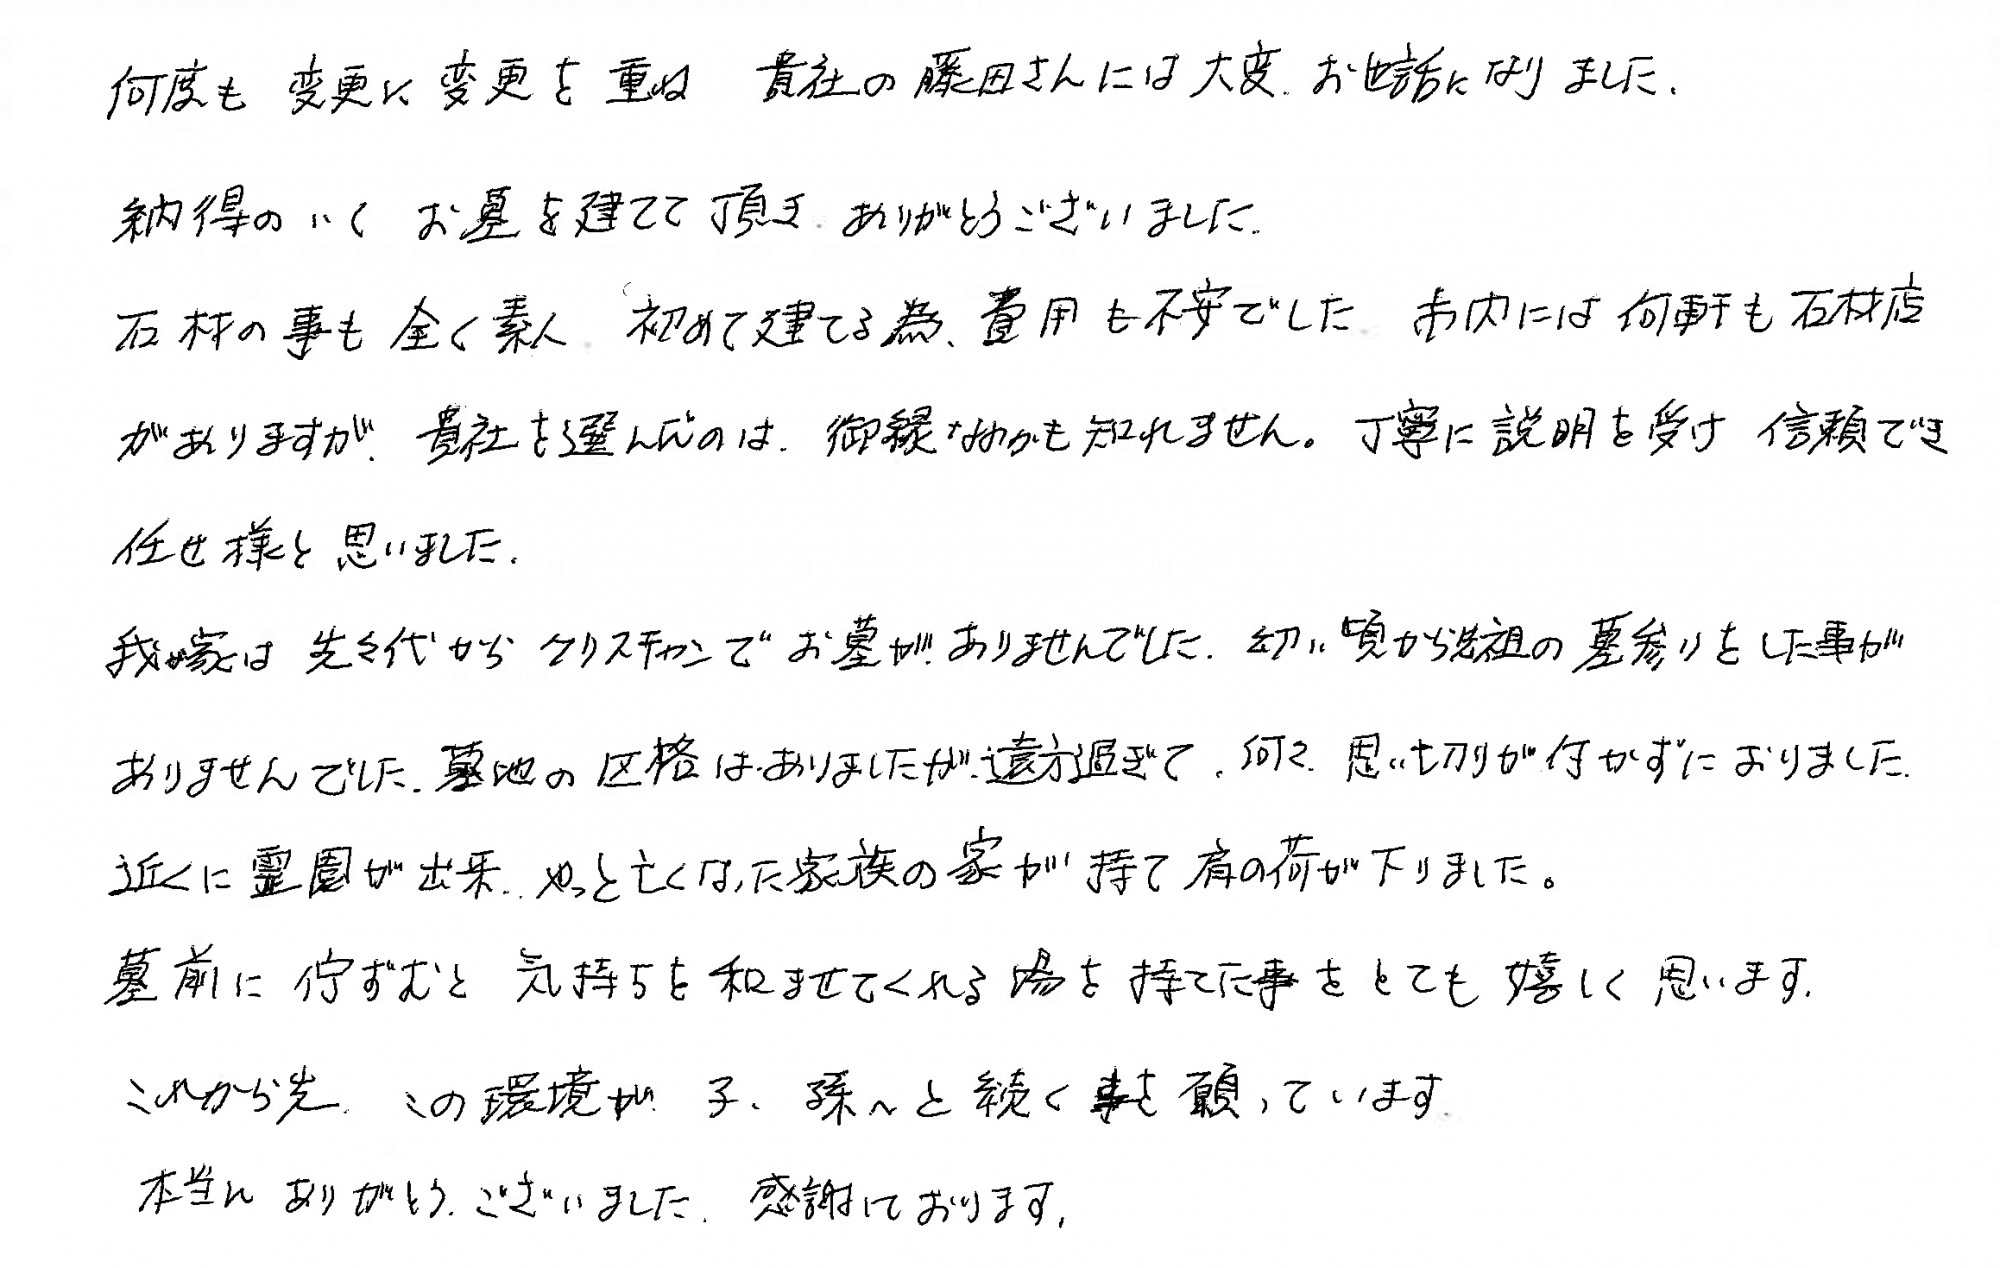 何度も 変更に変更を重ね 貴社の藤田さんには大変、お世話になりました。
納得のいく お墓を建てて頂き、ありがとうございました。
石材の事も全く素人、初めて建てる為、費用も不安でした 市内には何軒も石材店
がありますが、貴社を選んだのは、御縁なのかも知れません。丁寧に説明を受け 信頼でき
任せ様と思いました。
我が家は 先々代からクリスチャンでお墓が、ありませんでした。幼い頃から先祖の墓参りをした事が
ありませんでした。墓地の区格は、ありましたが、遠方過ぎて、何々、思い切りが付かずにおりました。
近くに霊園が出来、やっと亡くなった家族の家が持て肩の荷が下りました。
墓前に佇ずむと 気持ちを和ませてくれる場を持てた事をとても嬉しく思います。
これから先、この環境が、子、孫へと続く事を願っています。
本当に ありがとう、ございました。感謝しております。